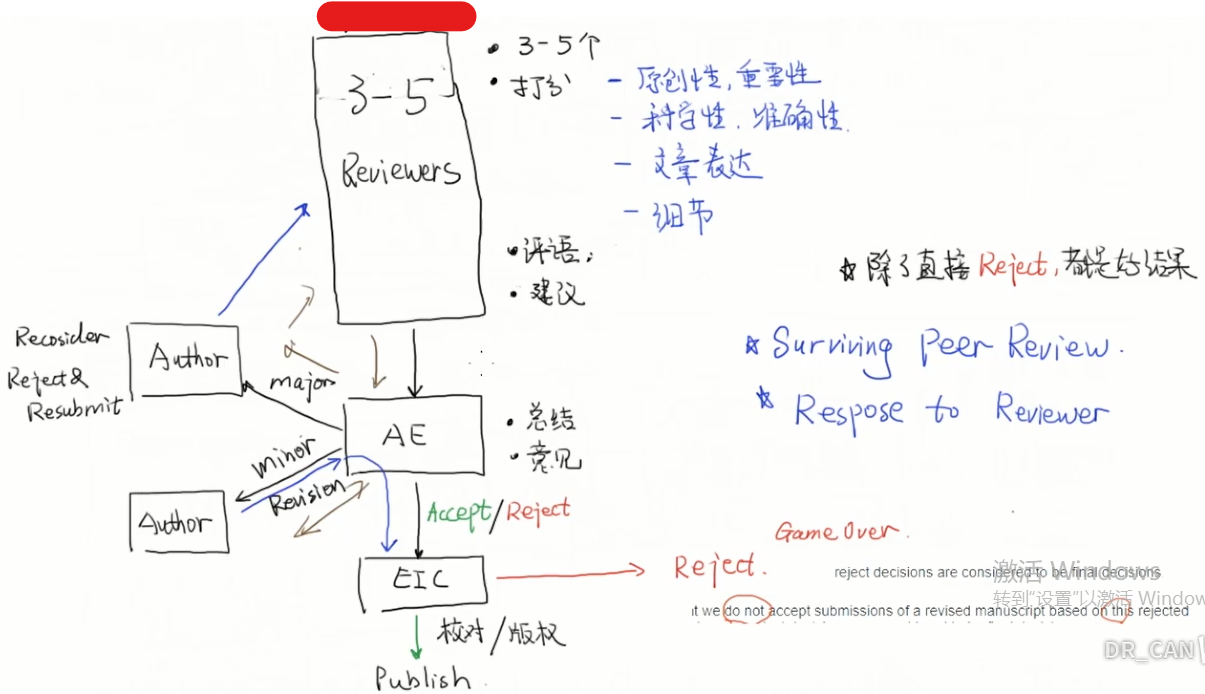 3-5
Reviewers
• 3-5个
• 打分
- 原创性,重要性
- 科学性.准确性.
- 文章表达
- 细节
• 评语;
• 建议
☆ 除了直接Reject,都是好结果
☆ Surviving Peer Review.
☆ Respose to Reviewer
Recosider
Reject&
Resubmit
Author
major
AE
• 总结
• 意见
minor
Revision
Author
Accept/Reject
EIC
Game Over.
Reject.
reject decisions are considered to be final decisions
激活 Windows
转到“设置”以激活 Window
t we do not accept submissions of a revised manuscript based on this rejected
校对/版权
Publish
DR_CAN